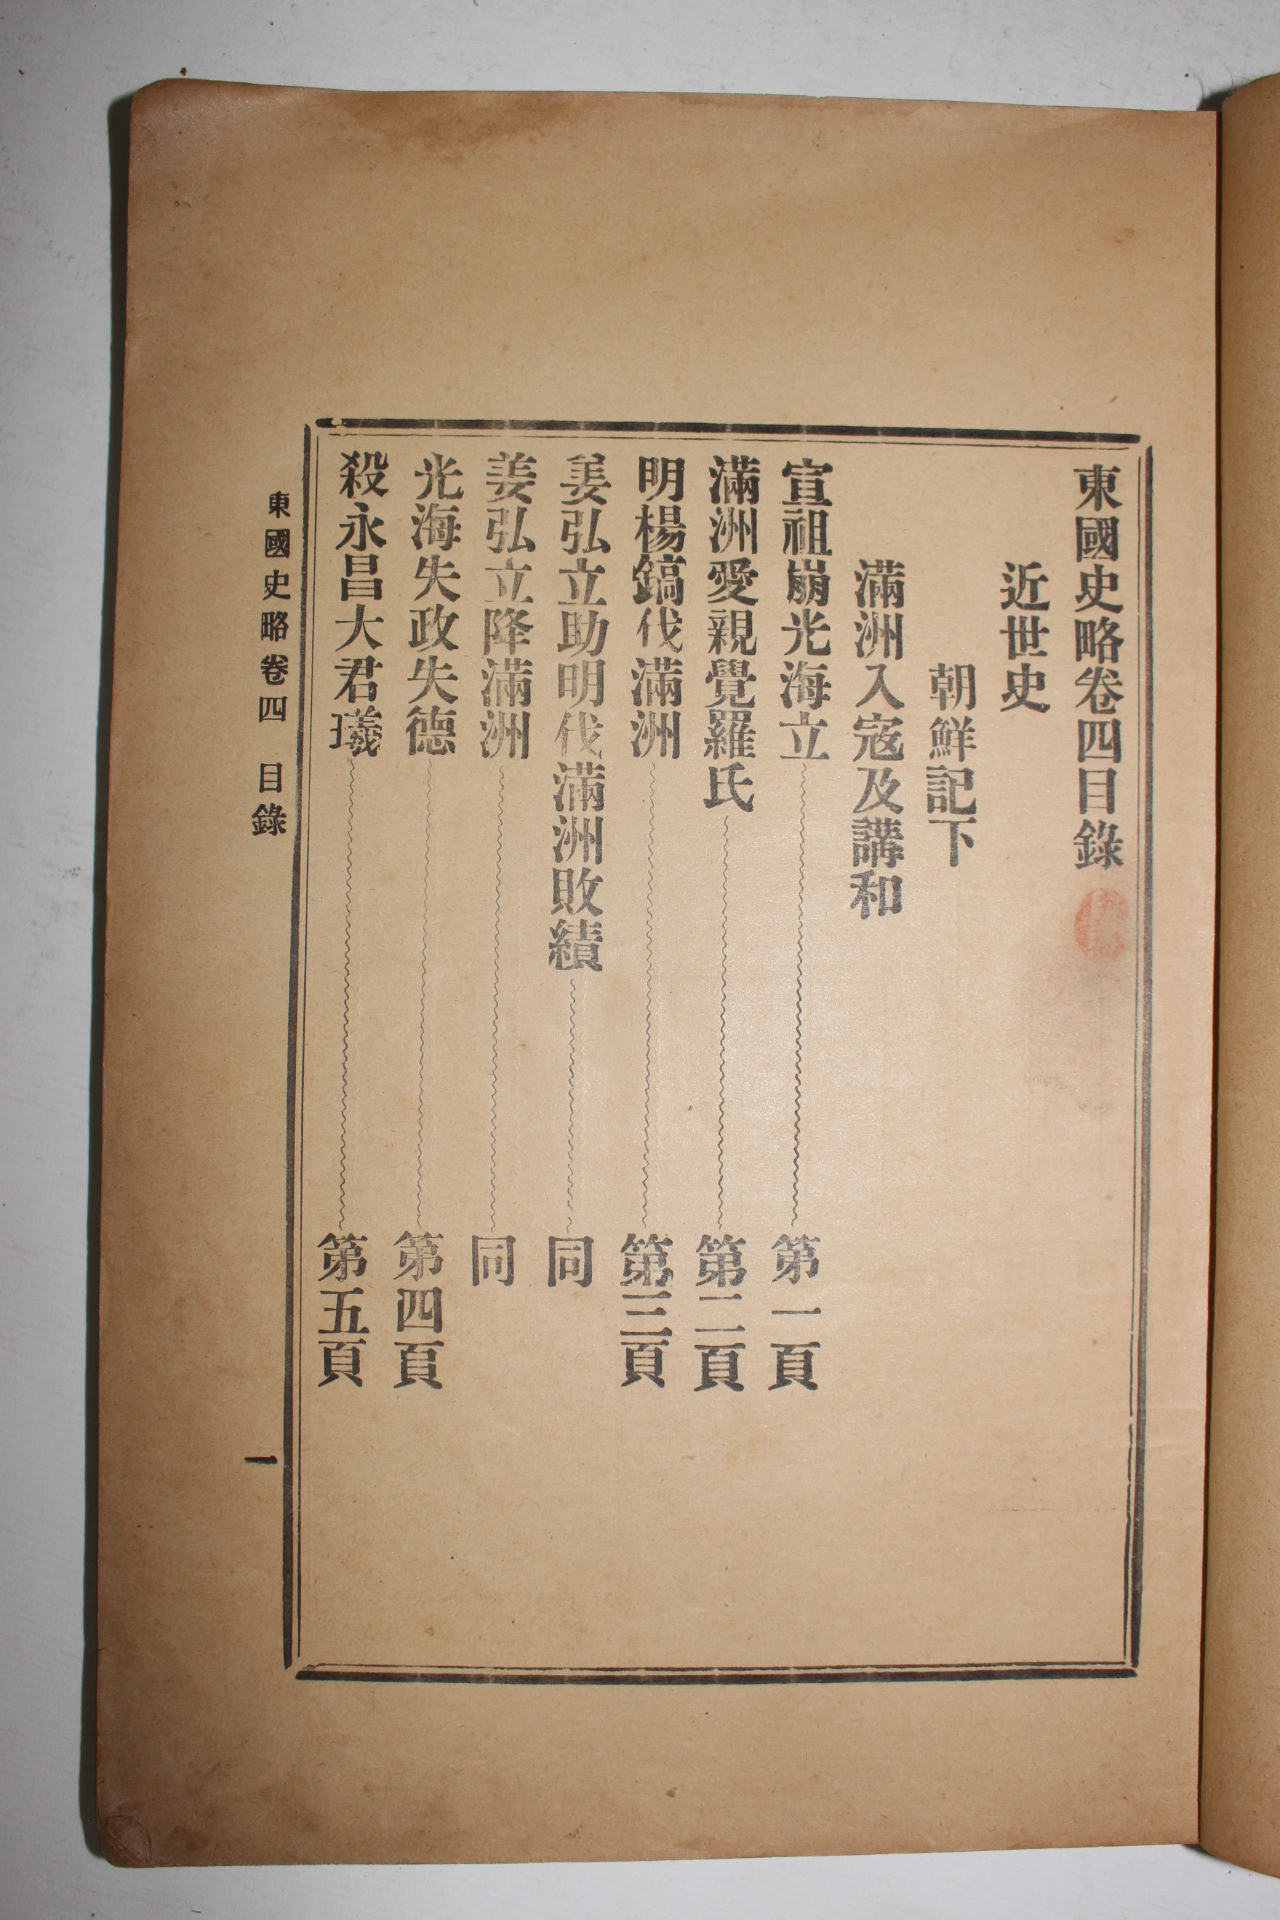 東國史略卷四目錄
近世史
朝鮮記下
滿洲入寇及講和
宣祖崩光海立 第一頁
滿洲愛親覺羅氏 第二頁
明楊鎬伐滿洲 第三頁
姜弘立助明伐滿洲敗績 同
姜弘立降滿洲 同
光海失政失德 第四頁
殺永昌大君㼁 第五頁
東國史略卷四 目錄
一